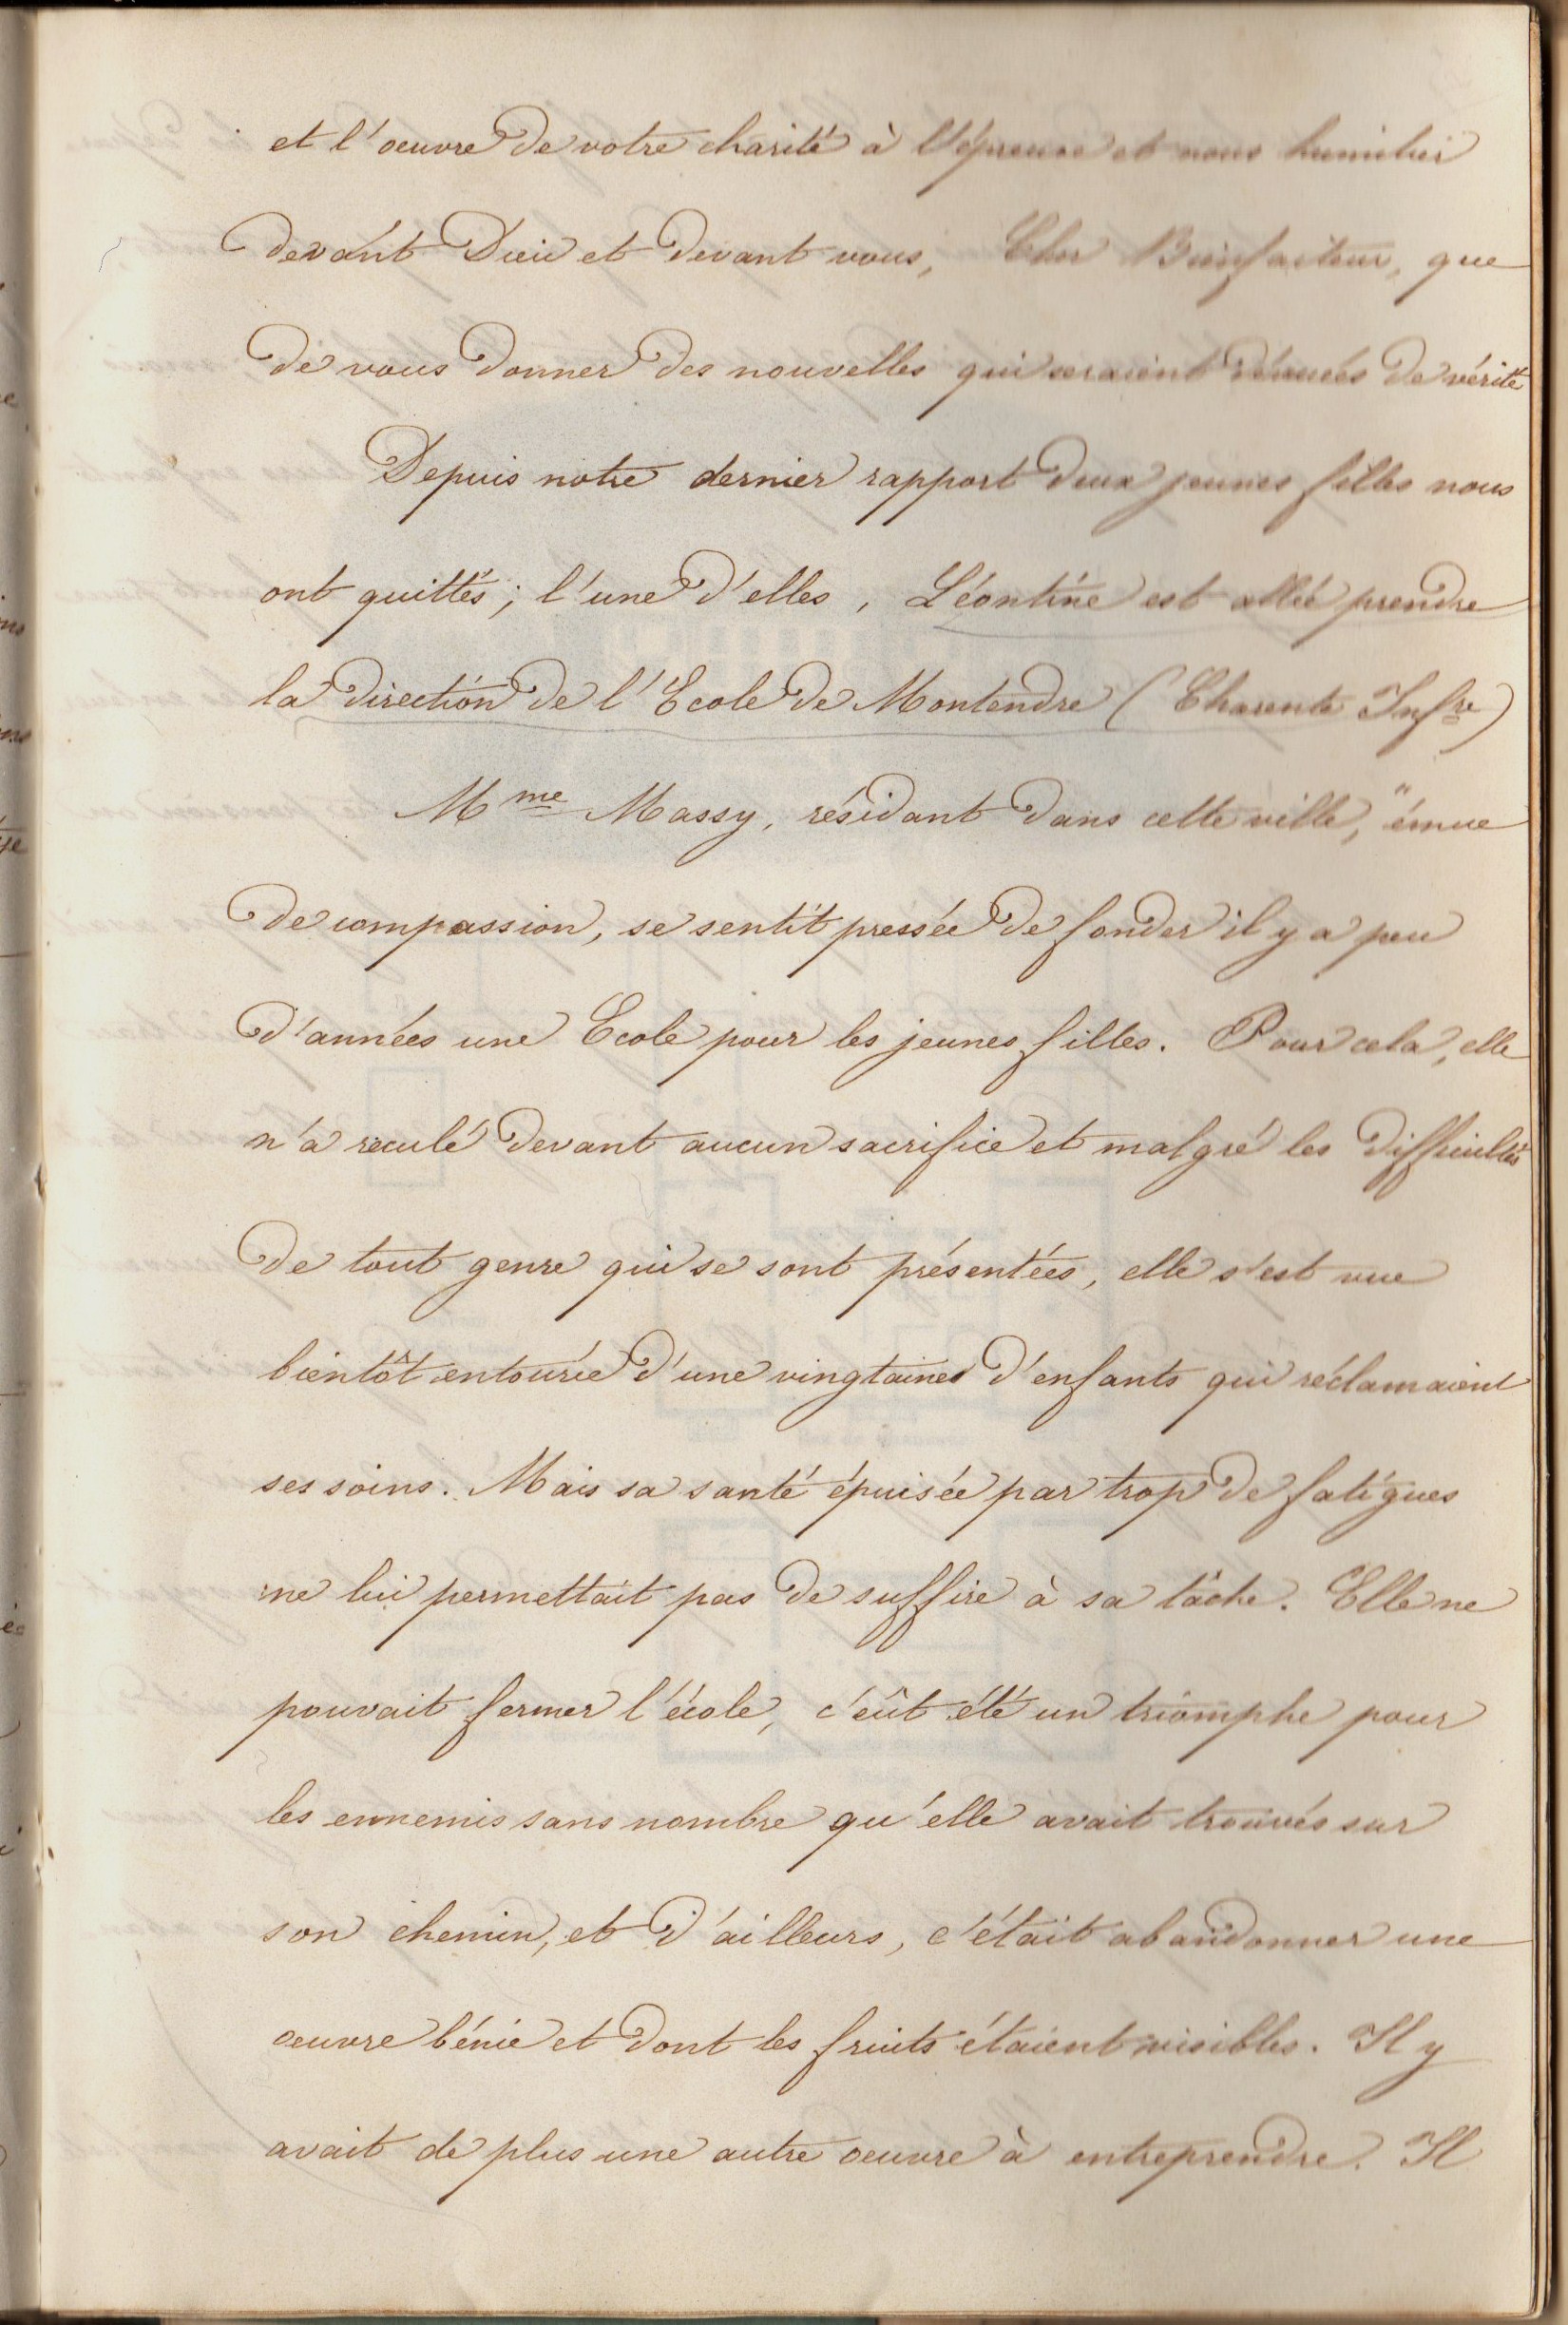 et l'œuvre de votre charité à l'épreuve et nous humilier
devant Dieu et devant vous, Cher Bienfaiteur, que
de vous donner des nouvelles qui seraient dénuées de vérité
Depuis notre dernier rapport deux jeunes filles nous
ont quittés ; l'une d'elles, Léontine est allée prendre
la direction de l'Ecole de Montendre (Charente Infre)
Mme Massy, résidant dans cette ville, "émue
de compassion, se sentit pressée de fonder il y a peu
d'années une Ecole pour les jeunes filles. Pour cela, elle
n'a reculé devant aucun sacrifice et malgré les difficultés
de tout genre qui se sont présentées, elle s'est vue
bientôt entourée d'une vingtaines d'enfants qui réclamaient
ses soins. Mais sa santé épuisée par trop de fatigues
ne lui permettait pas de suffire à sa tâche. Elle ne
pouvait fermer l'école, c'eût été un triomphe pour
les ennemis sans nombre qu'elle avait trouvés sur
son chemin, et d'ailleurs, c'était abandonner une
œuvre bénie et dont les fruits étaient visibles. Il y
avait de plus une autre œuvre à entreprendre. Il